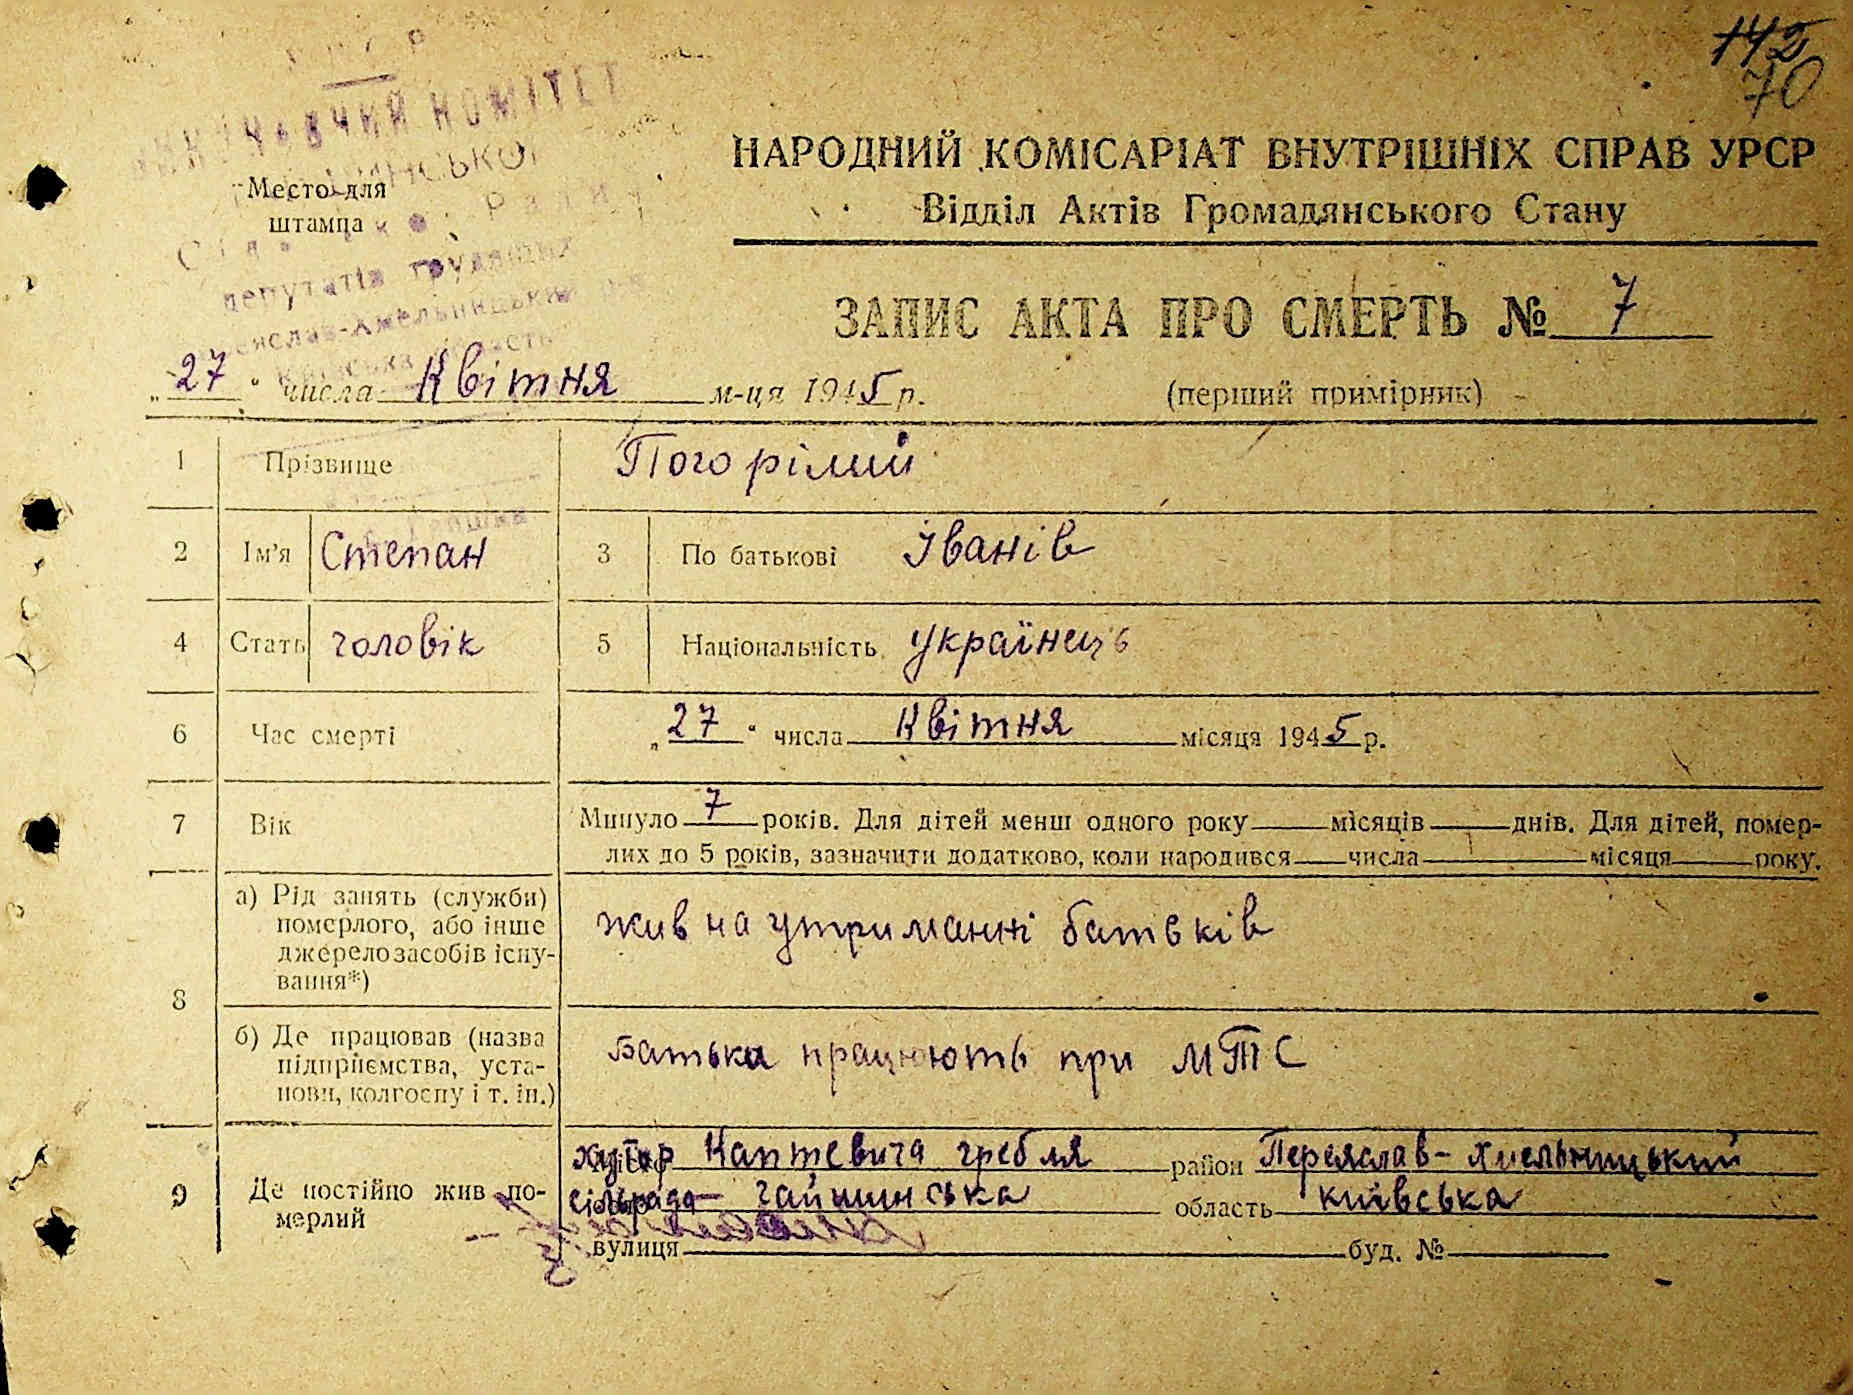 142
70
ВИКОНАВЧИЙ КОМІТЕТ
депутатів трудящих
НАРОДНИЙ КОМІСАРІАТ ВНУТРІШНІХ СПРАВ УРСР
Место для
штампа
Відділ Актів Громадянського Стану
ЗАПИС АКТА ПРО СМЕРТЬ № 7
„27“ числа Квітня м-ця 1945 р.
(перший примірник)
1 Прізвище Погорілий
2 Ім'я Степан 3 По батькові Іванів
4 Стать чоловік 5 Національність Українець
6 Час смерті „27“ числа Квітня місяця 1945 р.
7 Вік Минуло 7 років. Для дітей менш одного року місяців днів. Для дітей, помер-
лих до 5 років, зазначити додатково, коли народився числа місяця року.
8 а) Рід занять (служби)
помєрлого, або інше
джерело засобів існу-
вання*)
жив на утриманні батьків
б) Де працював (назва
підприємства, уста-
нови, колгоспу і т. ін.)
Батьки працюють при МТС
9 Де постійно жив по-
мерлий
хутор Каптевича гребля район Переяслав-Хмельницький
сільрада Гайшинська область Київська
вулиця буд. №